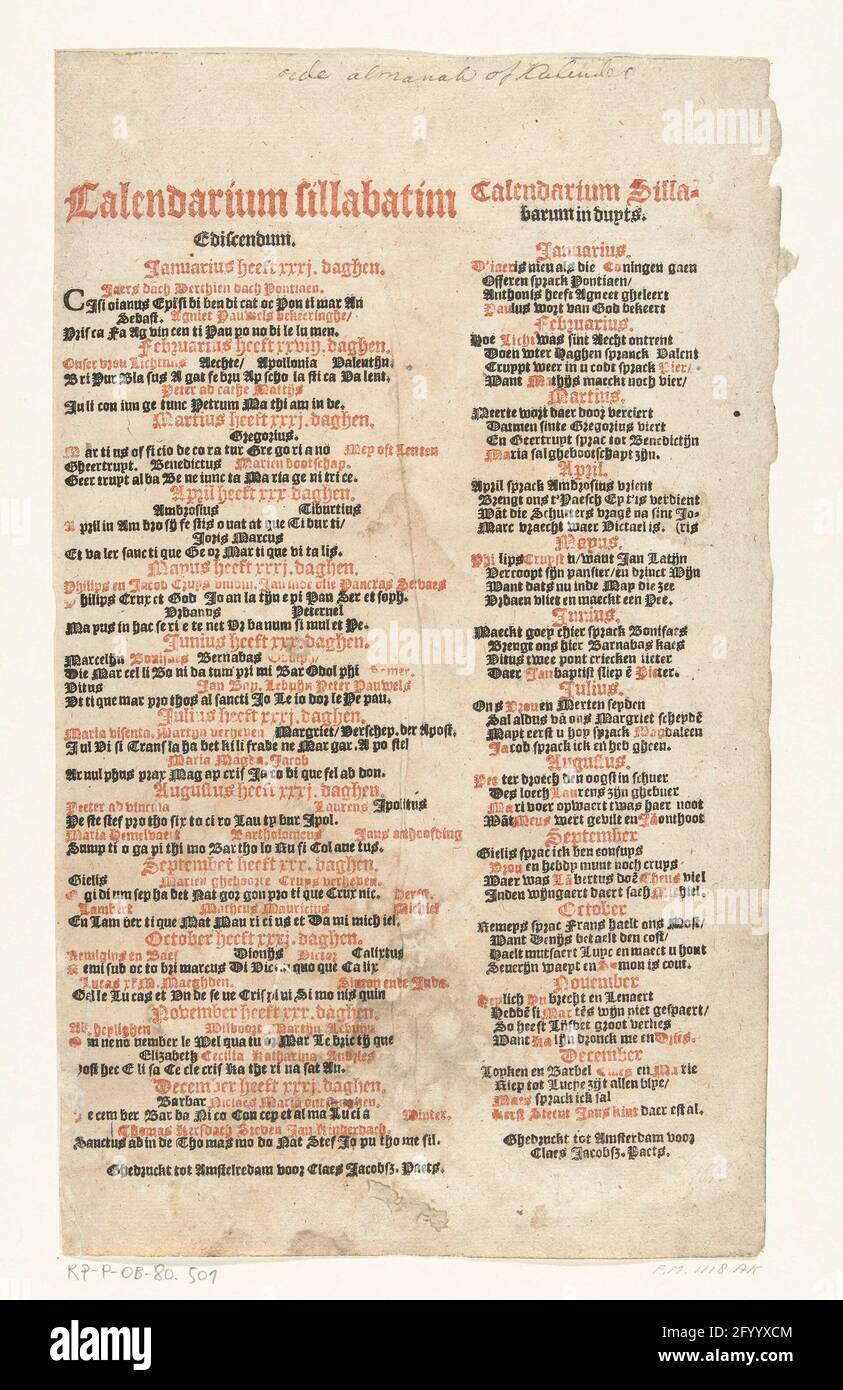 oude almanak of Kalender
Calendarium sillabatim
Ediscendum.
Januarius heeft xxxj. daghen.
Jaers dach Derthien dach Pontiaen.
Cisi oianus Epi si bi ben di cat oc Pon ti mar An
Sebast. Agniet Pauwels bekeeringhe/
Pris ca Fa Ag vin cen ti Pau po no bi le lu men.
Februarius heeft xxviij. daghen.
Onser vrou Lichtmis Aechte/ Apollonia Valentijn
Bri Pur Bla sus A gat fe bru Ap scho la sti ca Va lent.
Peter ad cathe Mattijs
Ju li con iun ge tunc Petrum Ma thi am in de.
Martius heeft xxxj. daghen.
Gregorius.
Mar ti us of fi cio de co ra tur Gre go ri a no Mey oft Lenten
Gheertrupt. Benedictus Marien bootschap.
Geer trupt al ba Be ne iunc ta Ma ria ge ni tri ce.
April heeft xxx. daghen.
Ambrosius Tiburtius
A pril in Am bro sij fe stis o uat at que Ti bur ti/
Joris Marcus
Et va ler sanc ti que Ge or Mar ti que vi ta lis.
Mayus heeft xxxj. daghen.
Philips en Jacob Cruys Jan inde olie Pancras Servaes
Philips Crux et God Jo an la tijn e pi Pan Ser et soph.
Vrbanus Peternel
Ma yus in hac se ri e te net Vr ba num si mul et Pe.
Junius heeft xxx. daghen.
Marcellijn Bonifaes Bernabas
Die Mar cel li Bo ni da tum pri mi Bar Odol phi Somer.
Vitus Jan Bap. Lebuijn Peter Pauwels
Vt ti que mar pro thos al sancti Jo Le io dor le Pe pau.
Julius heeft xxxj. daghen.
Maria visenta. Martijn verheven Margriet/ Verschep. der Apost.
Jul Vi si Trans la ha bet ki li fra de ne Mar gar. A po stel
Maria Magda. Jacob
Ar nul phus prax Mag ap cris Ja co bi que fel ab don.
Augustus heeft xxxj. daghen.
Peeter ad vincula Laurens Ipolitus
Pe ste stef pro tho six to ci ro Lau ty bur Ipol.
Maria Hemelvaert Bartholomeus Jans onthoofding
Sump ti o ga pi thi mo Bar tho lo Ru fi Col an e tus.
September heeft xxx. daghen.
Gielis Marien gheboorte Cruys verheven.
Egi di um sep ha bet Nat gor gon pro ti que Crux nic. Herfst.
Lambert Matheus Mauricius Michiel
En Lam ber ti que Mat Mau ri ci us et Da mi mich iel.
October heeft xxxj. daghen.
Remigius en Baef Dionijs Victor Calixtus
Remi sub oc to bri marcus Di quo que Ca lix
Lucas xi M. Maeghden. Simon ende Juda.
Galle Lucas et Vn de se ue Cris pi ui Si mo nis quin
November heeft xxx. daghen.
Alheylighen Wilboort Martijn Lebuijn
Om ne no uember le Wel qua tu or Mar Le bric tij que
Elizabeth Cecilia Katharina Andries
post hec E li sa Ce cle cris Ka the ri na sat An.
December heeft xxxj. daghen.
Barbar Niclaes Maria ontfanghen
De cem ber Bar ba Ni co Con cep et al ma Lucia Winter.
Thomas Kersdach Steven Jan Kinderdach.
Sanctus ab in de Tho mas mo do Nat Stef Jo pu tho me sil.
Ghedruckt tot Amstelredam voor Claes Jacobsz. Paets.
Calendarium Silla-
barum in duyts.
Januarius.
D'iaer is nieu als die Coningen gaen
Offeren sprack Pontiaen/
Anthonis heeft Agneet gheleert
Paulus wort van God bekeert
Februarius.
Hoe Licht was sint Aecht ontrent
Doen wter Haghen spranck Valent
Cruypt weer in u codt sprack Pier/
Want Mathijs maeckt noch vier/
Martius.
Meerte wort daer door verciert
Datmen sinte Gregorius viert
En Geertruyt sprac tot Benedictijn
Maria sal ghebootschapt zijn.
April.
April sprack Ambrosius vrient
Brengt ons t'Paesch Ey t'is verdient
Wāt die Schutters vragē na sint Jo-
Marc vraecht waer Victael is. (ris
Mayus.
Philips Cruyst u/want Jan Latijn
Vercoopt sijn pansier/en drinct Wijn
Want dats nu inde May die zee
Vrbaen vliet en maeckt een Pee.
Junius.
Maeckt goey chier sprack Bonifaes
Brengt ons hier Barnabas kaes
Vitus twee pont criecken
Daer Jan baptist sliep ē Pieter.
Julius.
Ons Vrou en Merten seyden
Sal aldus vā ons Margriet scheydē
Mayt eerst u hoy sprack Magdaleen
Jacob sprack ick en heb gheen.
Augustus.
Peeter droech den oogst in schuer
Des loech Laurens zijn ghebuer
Mari voer opwaert twas haer noot
Wāt Meus wert gevilt en Jā onthoot
September
Gielis sprac ick ben confuys
Vrou en hebdy munt noch cruys
Waer was Lābertus doē Theus viel
Inden wijngaert daert sach Michiel.
October
Remeys sprac Frans haelt ons Most/
Want Denijs betaelt den cost/
Haelt mutsaert Luyc en maect u hout
Severijn waeyt en Semon is cout.
November
Heylich Hubrecht en Lenaert
Hebbē si Martēs wijn niet gespaert/
So heeft Lijsbet groot verlies
Want Katijn dronck me en Dries.
December
Loyken en Barbel Claes en Marie
Riep tot Lucye zijt allen blye/
Maes sprack ick sal
Kerst Steent Jans kint daer est al.
Ghedruckt tot Amsterdam voor
Claes Jacobsz. Paets.
RP-P-OB-80.501
F.M. 1118 AK
alamy
Image ID: 2FYYXCM
www.alamy.com